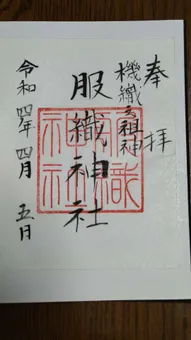 奉拝
機織之祖神
服織神社
令和四年四月五日
服織神社